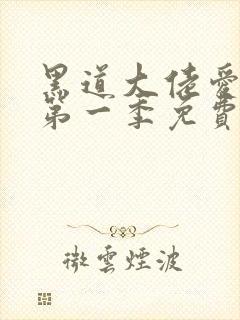 黑道大佬愛
第一季免費
微雲煙波